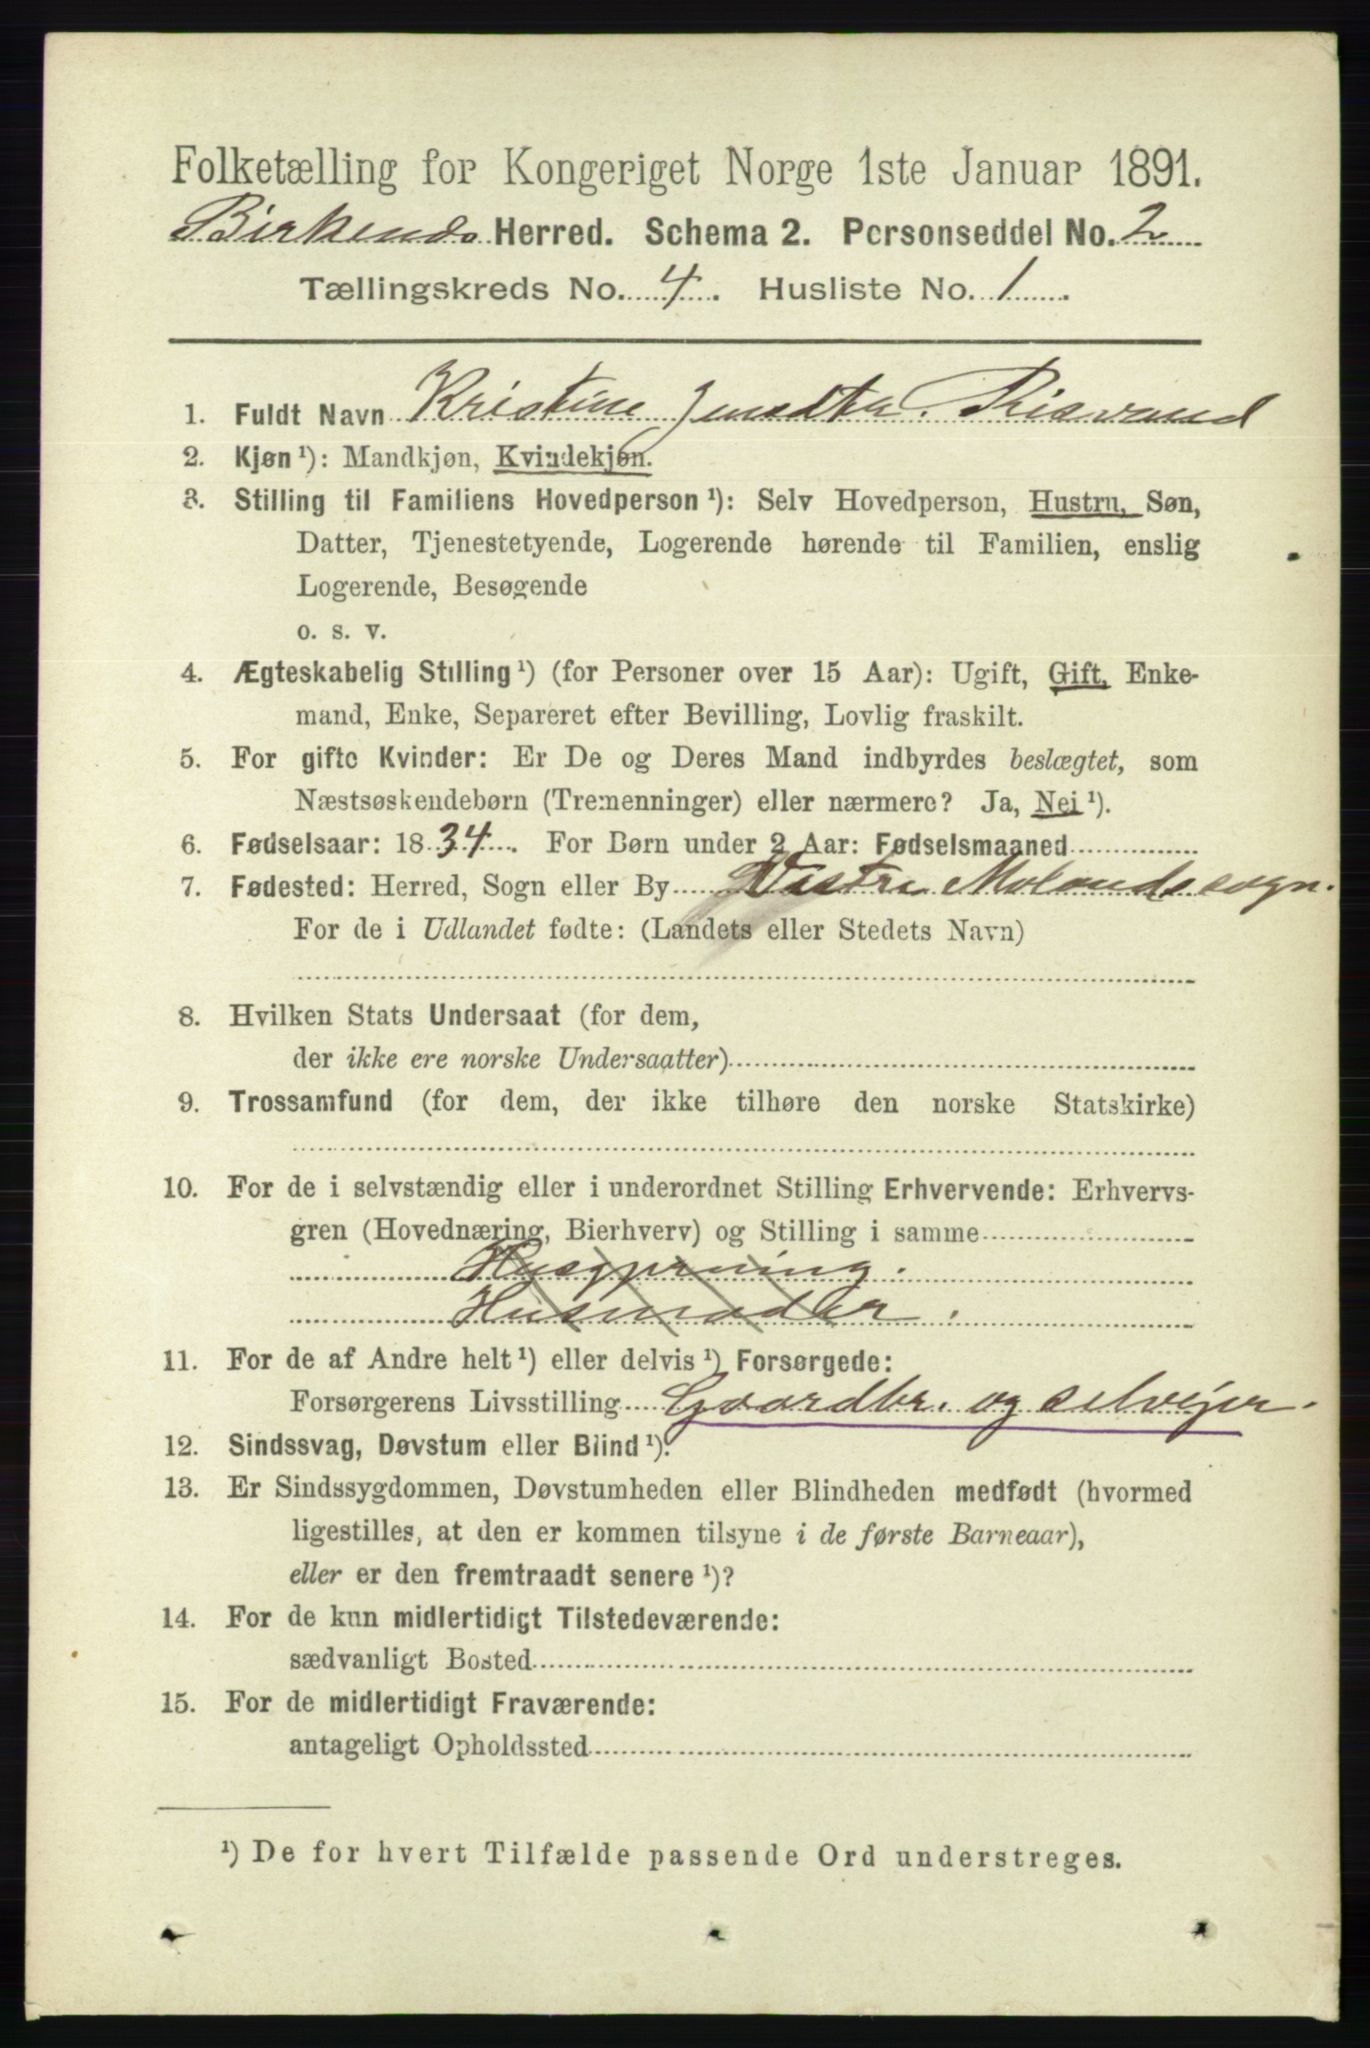 Folketælling for Kongeriget Norge 1ste Januar 1891.
Birkenes Herred. Schema 2. Personseddel No. 2
Tællingskreds No. 4. Husliste No. 1
1. Fuldt Navn Kristine Jensdtr. Risvand
2. Kjøn ¹): Mandkjøn, Kvindekjøn.
3. Stilling til Familiens Hovedperson ¹): Selv Hovedperson, Hustru, Søn,
Datter, Tjenestetyende, Logerende hørende til Familien, enslig
Logerende, Besøgende
o. s. v.
4. Ægteskabelig Stilling ¹) (for Personer over 15 Aar): Ugift, Gift, Enke-
mand, Enke, Separeret efter Bevilling, Lovlig fraskilt.
5. For gifte Kvinder: Er De og Deres Mand indbyrdes beslægtet, som
Næstsøskendebørn (Tremenninger) eller nærmere? Ja, Nei ¹).
6. Fødselsaar: 1834. For Børn under 2 Aar: Fødselsmaaned
7. Fødested: Herred, Sogn eller By Vestre Molands sogn.
For de i Udlandet fødte: (Landets eller Stedets Navn)
8. Hvilken Stats Undersaat (for dem,
der ikke ere norske Undersaatter)
9. Trossamfund (for dem, der ikke tilhøre den norske Statskirke)
10. For de i selvstændig eller i underordnet Stilling Erhvervende: Erhvervs-
gren (Hovednæring, Bierhverv) og Stilling i samme
Husgjerning.
Husmoder.
11. For de af Andre helt ¹) eller delvis ¹) Forsørgede:
Forsørgerens Livsstilling Gaardbr. og selveier.
12. Sindssvag, Døvstum eller Blind ¹).
13. Er Sindssygdommen, Døvstumheden eller Blindheden medfødt (hvormed
ligestilles, at den er kommen tilsyne i de første Barneaar),
eller er den fremtraadt senere ¹)?
14. For de kun midlertidigt Tilstedeværende:
sædvanligt Bosted
15. For de midlertidigt Fraværende:
antageligt Opholdssted
¹) De for hvert Tilfælde passende Ord understreges.